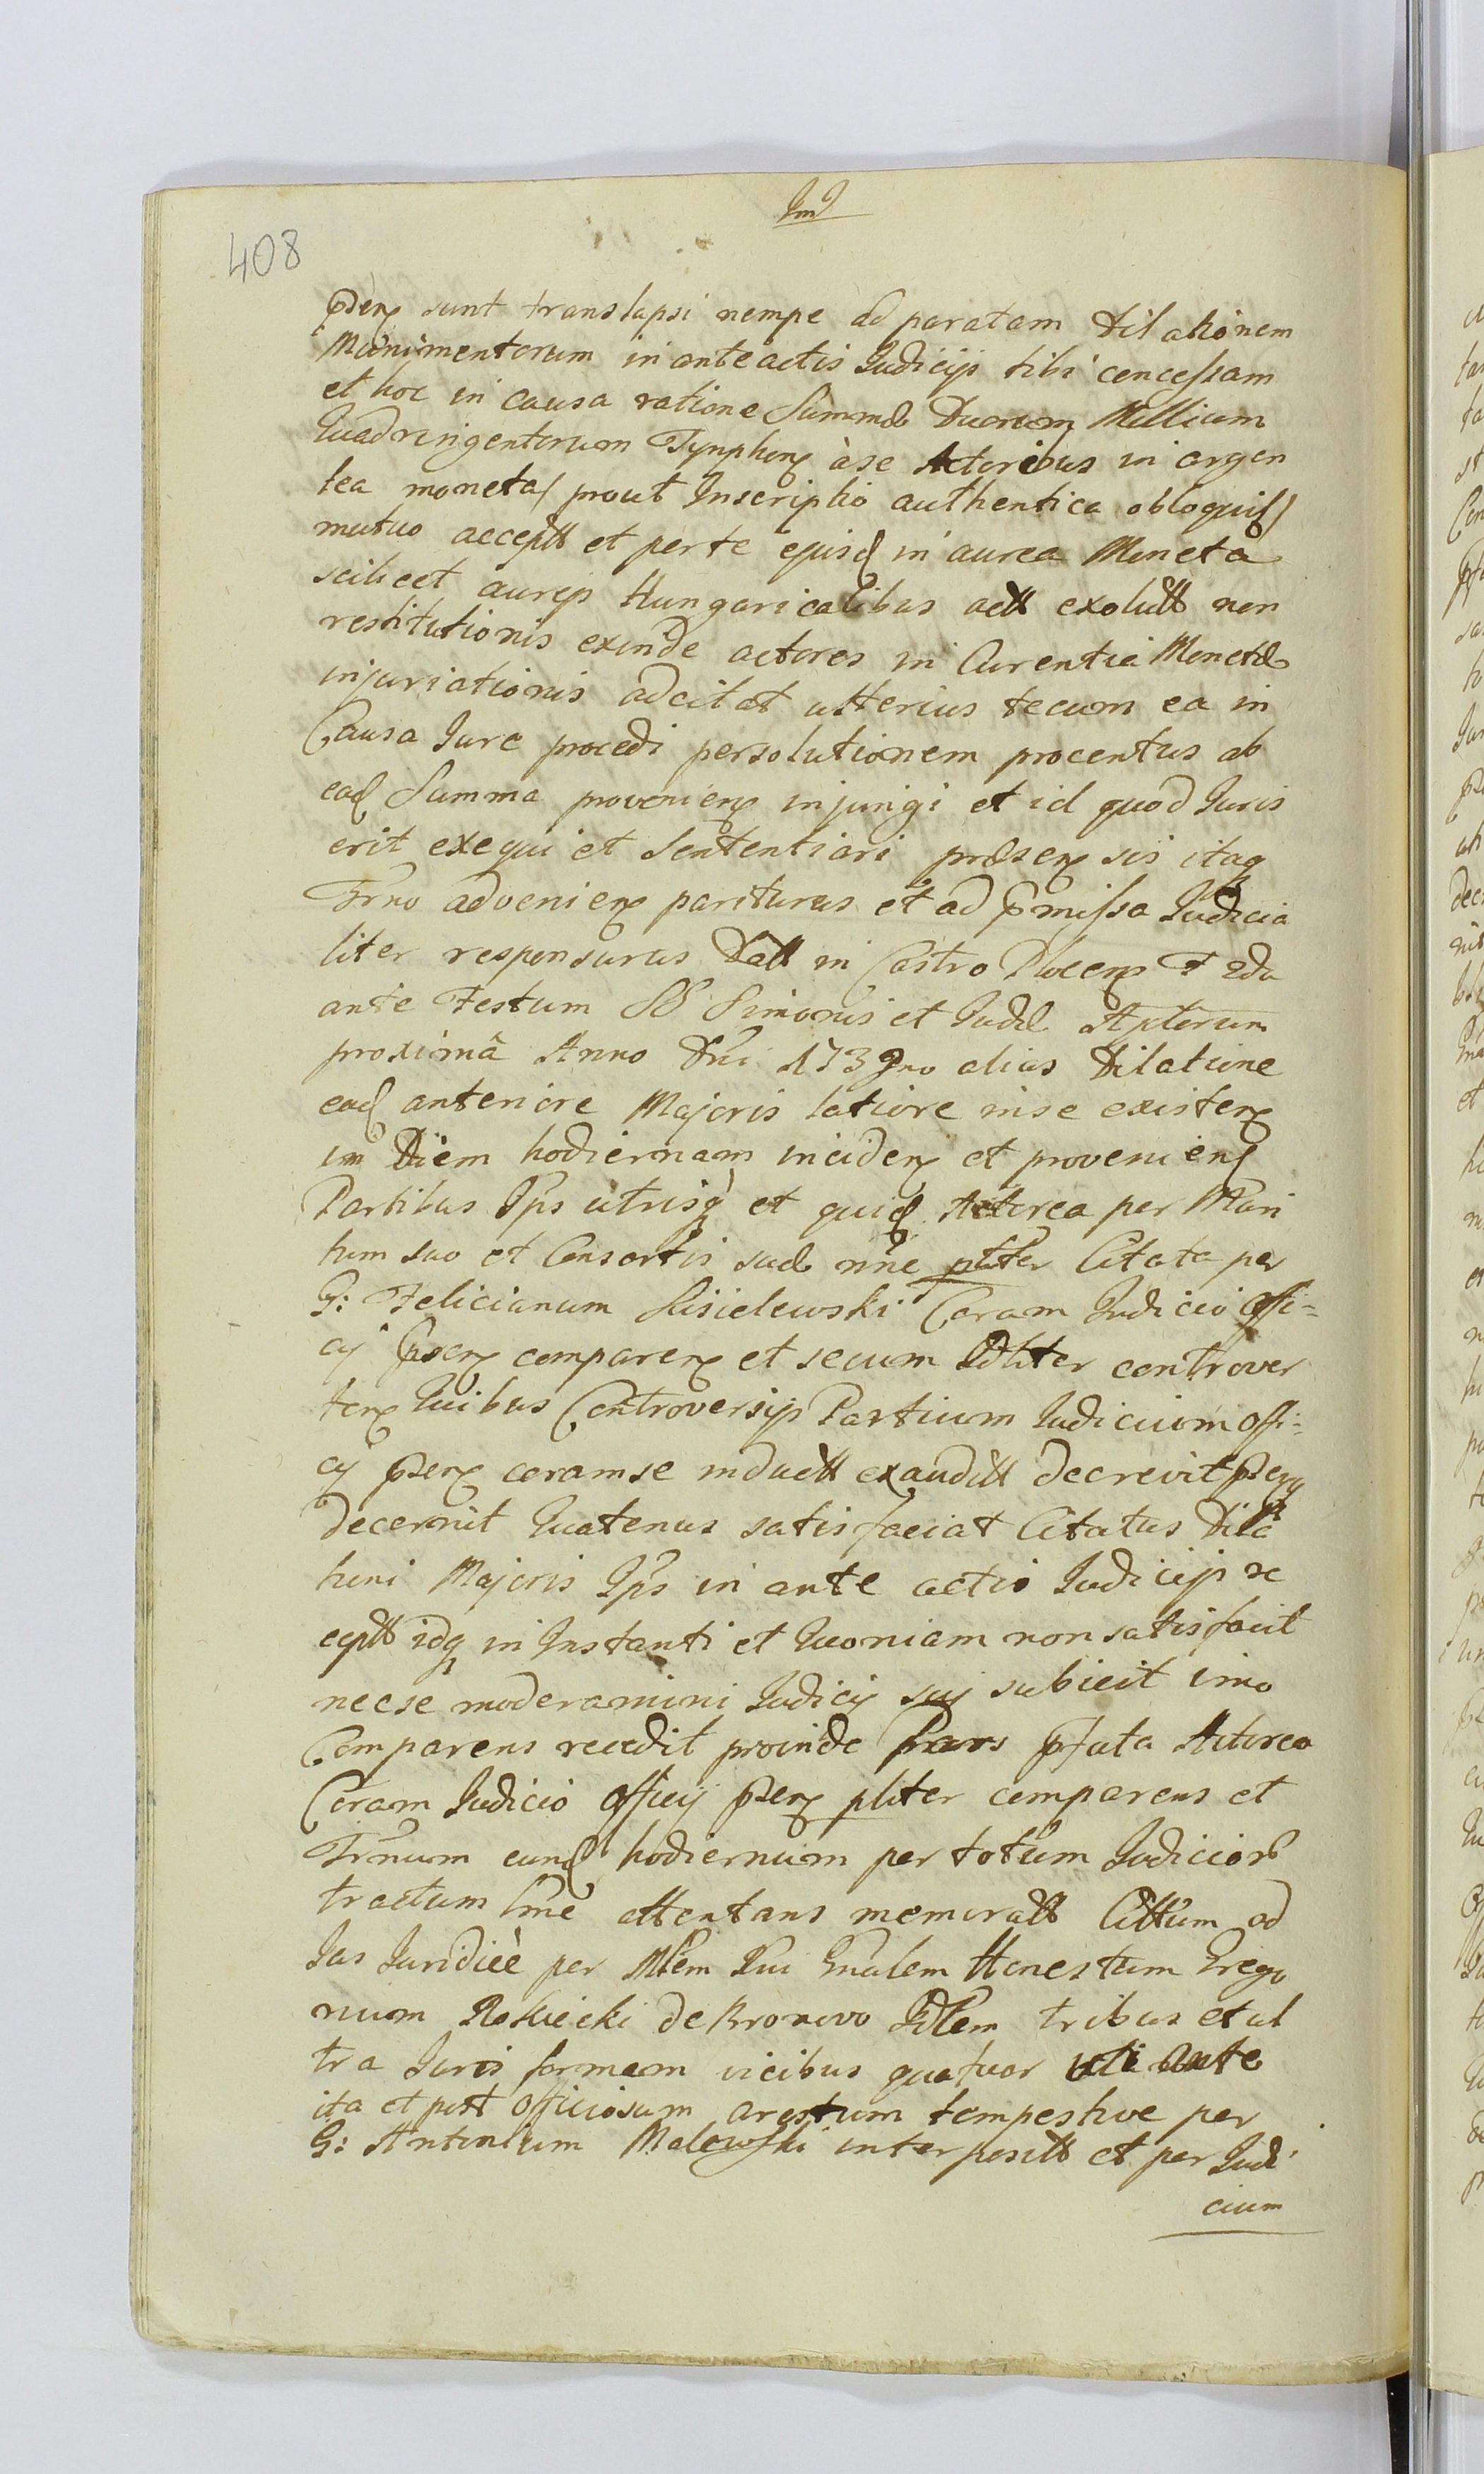 408
psen sunt translapsi nempe ad paratam Dilationem
Munimentorum in ante actis Judicijs tibi concessam
et hoc in causa ratione Summæ Duorum Millium
Quadringentorum Tymphon àse Actoribus in argen
tea moneta prout Inscriptio authentica obloquit
mutuo accept et per te ejusd in aurea Moneta
scilicet aureis Hungaricalibus exolut non
restitutionis exinde actores in Curentia Monetæ
injuriationis adcitat ulterius tecum ea in
Causa Jure procedi persolutionem procentus ab
ead Summa provenien injungi et id quod Juris
erit exequi et Sententiari præsen sis itaq
Trno advenien pariturus et ad pmissa Judicia
liter responsurus Datt in Castro Plocen F 2da
ante Festum SS Simonis et Judæ Aplorum
proximâ Anno Dni 1739no alias Dilatione
ead anteriore Majoris latiore inse existen
in Diem hodiernam inciden et provenien
Partibus Ips utrisq et quid Actorea per Mari
tum suo et Consortis suæ nne pliter Citata per
G: Felicianum Sisielewski Coram Judicio Offi=
cij psen comparen et secum Idliter controver
ten Quibus Controversijs Partium Judicium offi=
cij psen coramse induct exaudit decrevit psen
decernit Quatenus satisfaciat Citatus Dila
tioni Majoris Ips in ante actis Judicijs re
cept idq in Instanti et Quoniam non satisfacit
necse moderamini Judicij sui subiecit imo
Comparens recedit proinde Pars pfata Actorea
Coram Judicio officij psen pliter comparens et
Trnum eund hodiernum per totum Judicior
tractum lme attentans memorat Cittum ad
Jus Juridicè per Mlem Gnalem Honestum Grego
rium Rokicki de Bronovo Idlem tribus et ul
tra Juris formam vicibus quatuor uti ante
ita et post officiosum arestum tempestive per
G: Antonium Malowski interposit et per Judi
cium